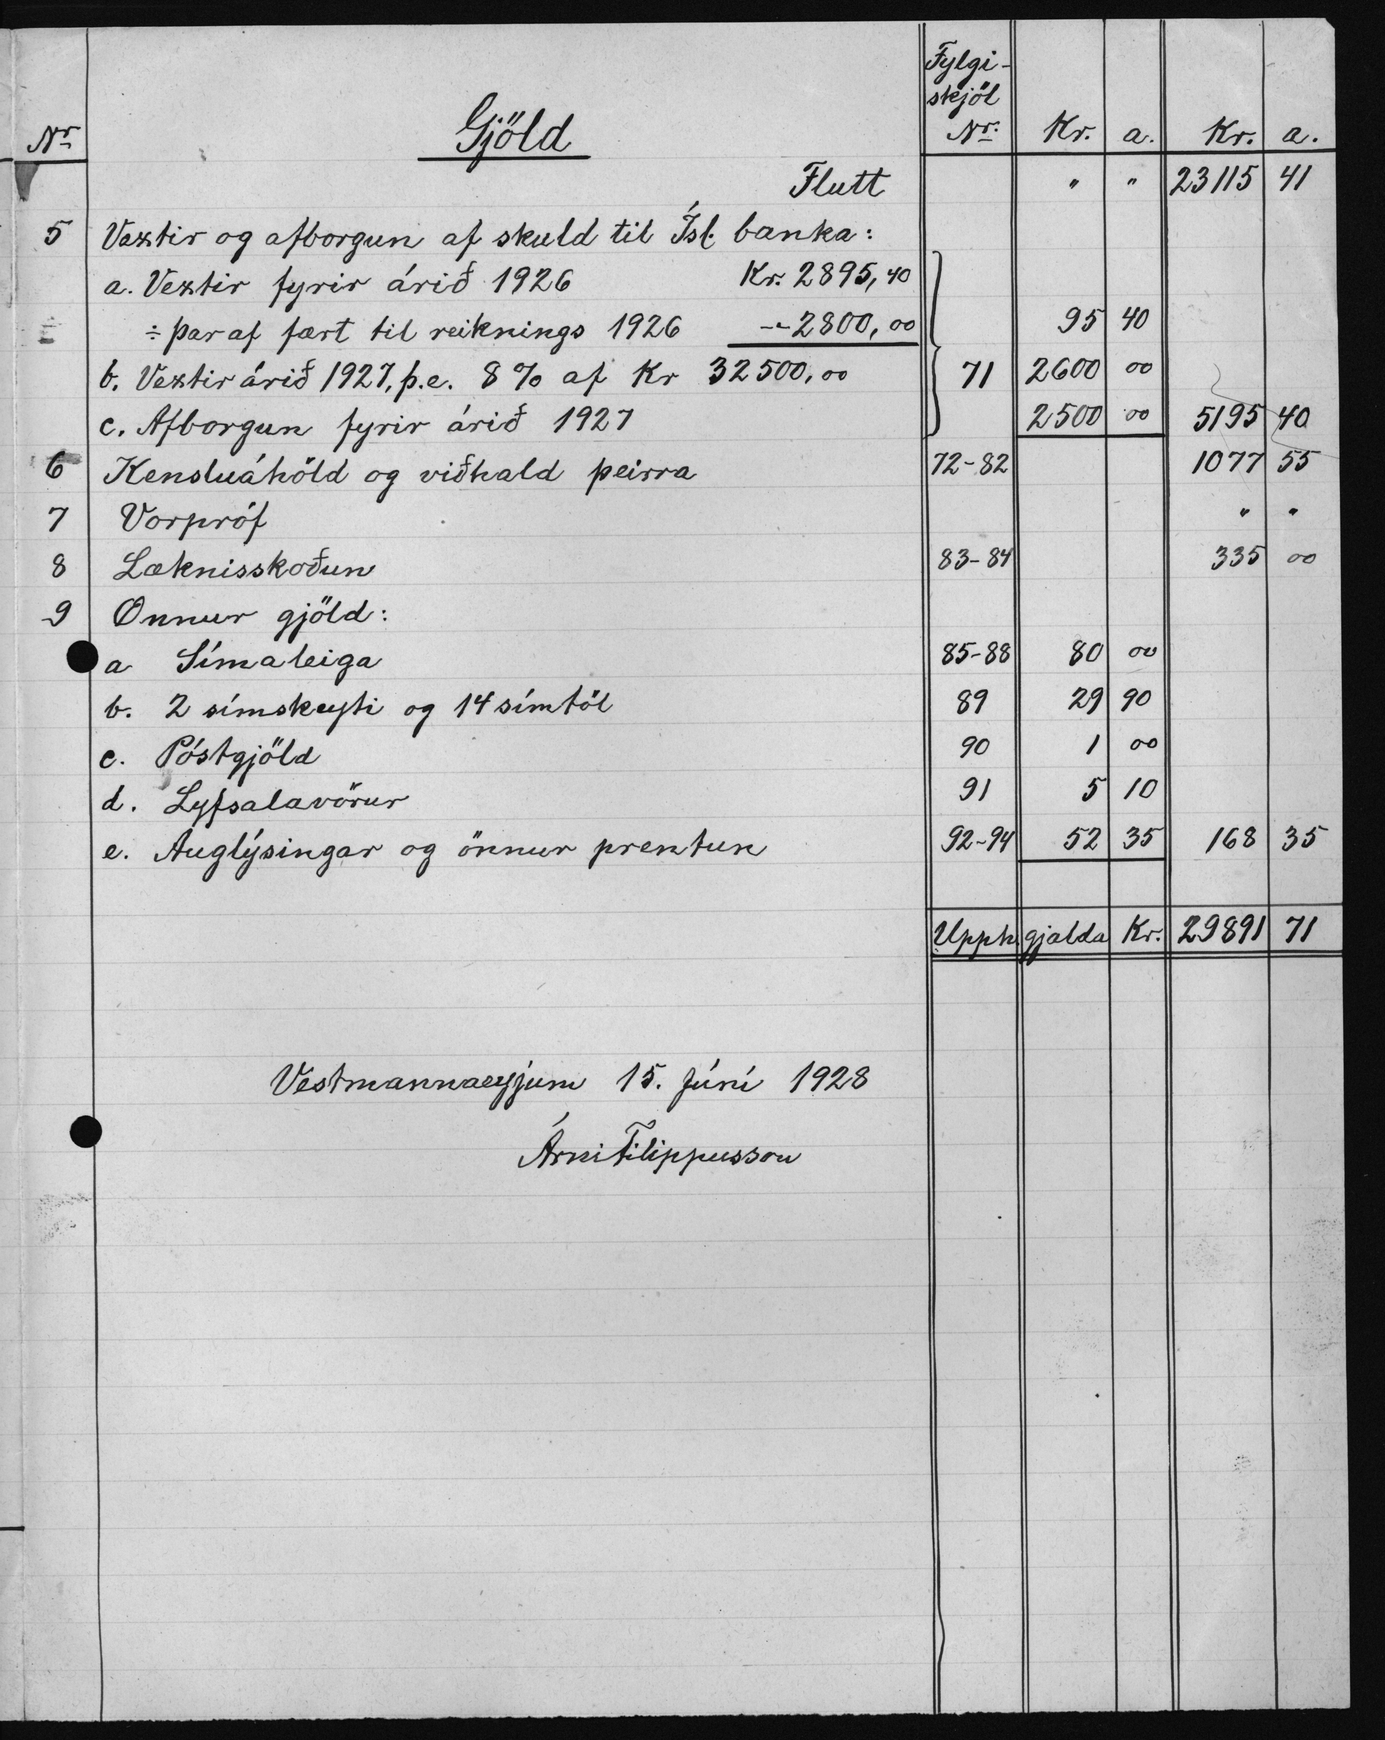 Fylgi-
skjöl
Nr Gjöld Nr. Kr. a. Kr. a.
Flutt " " 23115 41
5 Vextir og afborgun af skuld til Ísl. banka:
a. Vextir fyrir árið 1926 Kr. 2895,40
÷ þar af fært til reiknings 1926 -"- 2800,00 95 40
b. Vextir árið 1927, þ.e. 8% af Kr 32500,00 71 2600 00
c. Afborgun fyrir árið 1927 2500 00 5195 40
6 Kensluáhöld og viðhald þeirra 72-82 1077 55
7 Vorpróf " "
8 Læknisskoðun 83-84 335 00
9 Önnur gjöld:
a Símaleiga 85-88 80 00
b. 2 símskeyti og 14 símtöl 89 29 90
c. Póstgjöld 90 1 00
d. Lyfsalavörur 91 5 10
e. Auglýsingar og önnur prentun 92-94 52 35 168 35
Upph. gjalda Kr. 29891 71
Vestmannaeyjum 15. júní 1928
Árni Filippusson